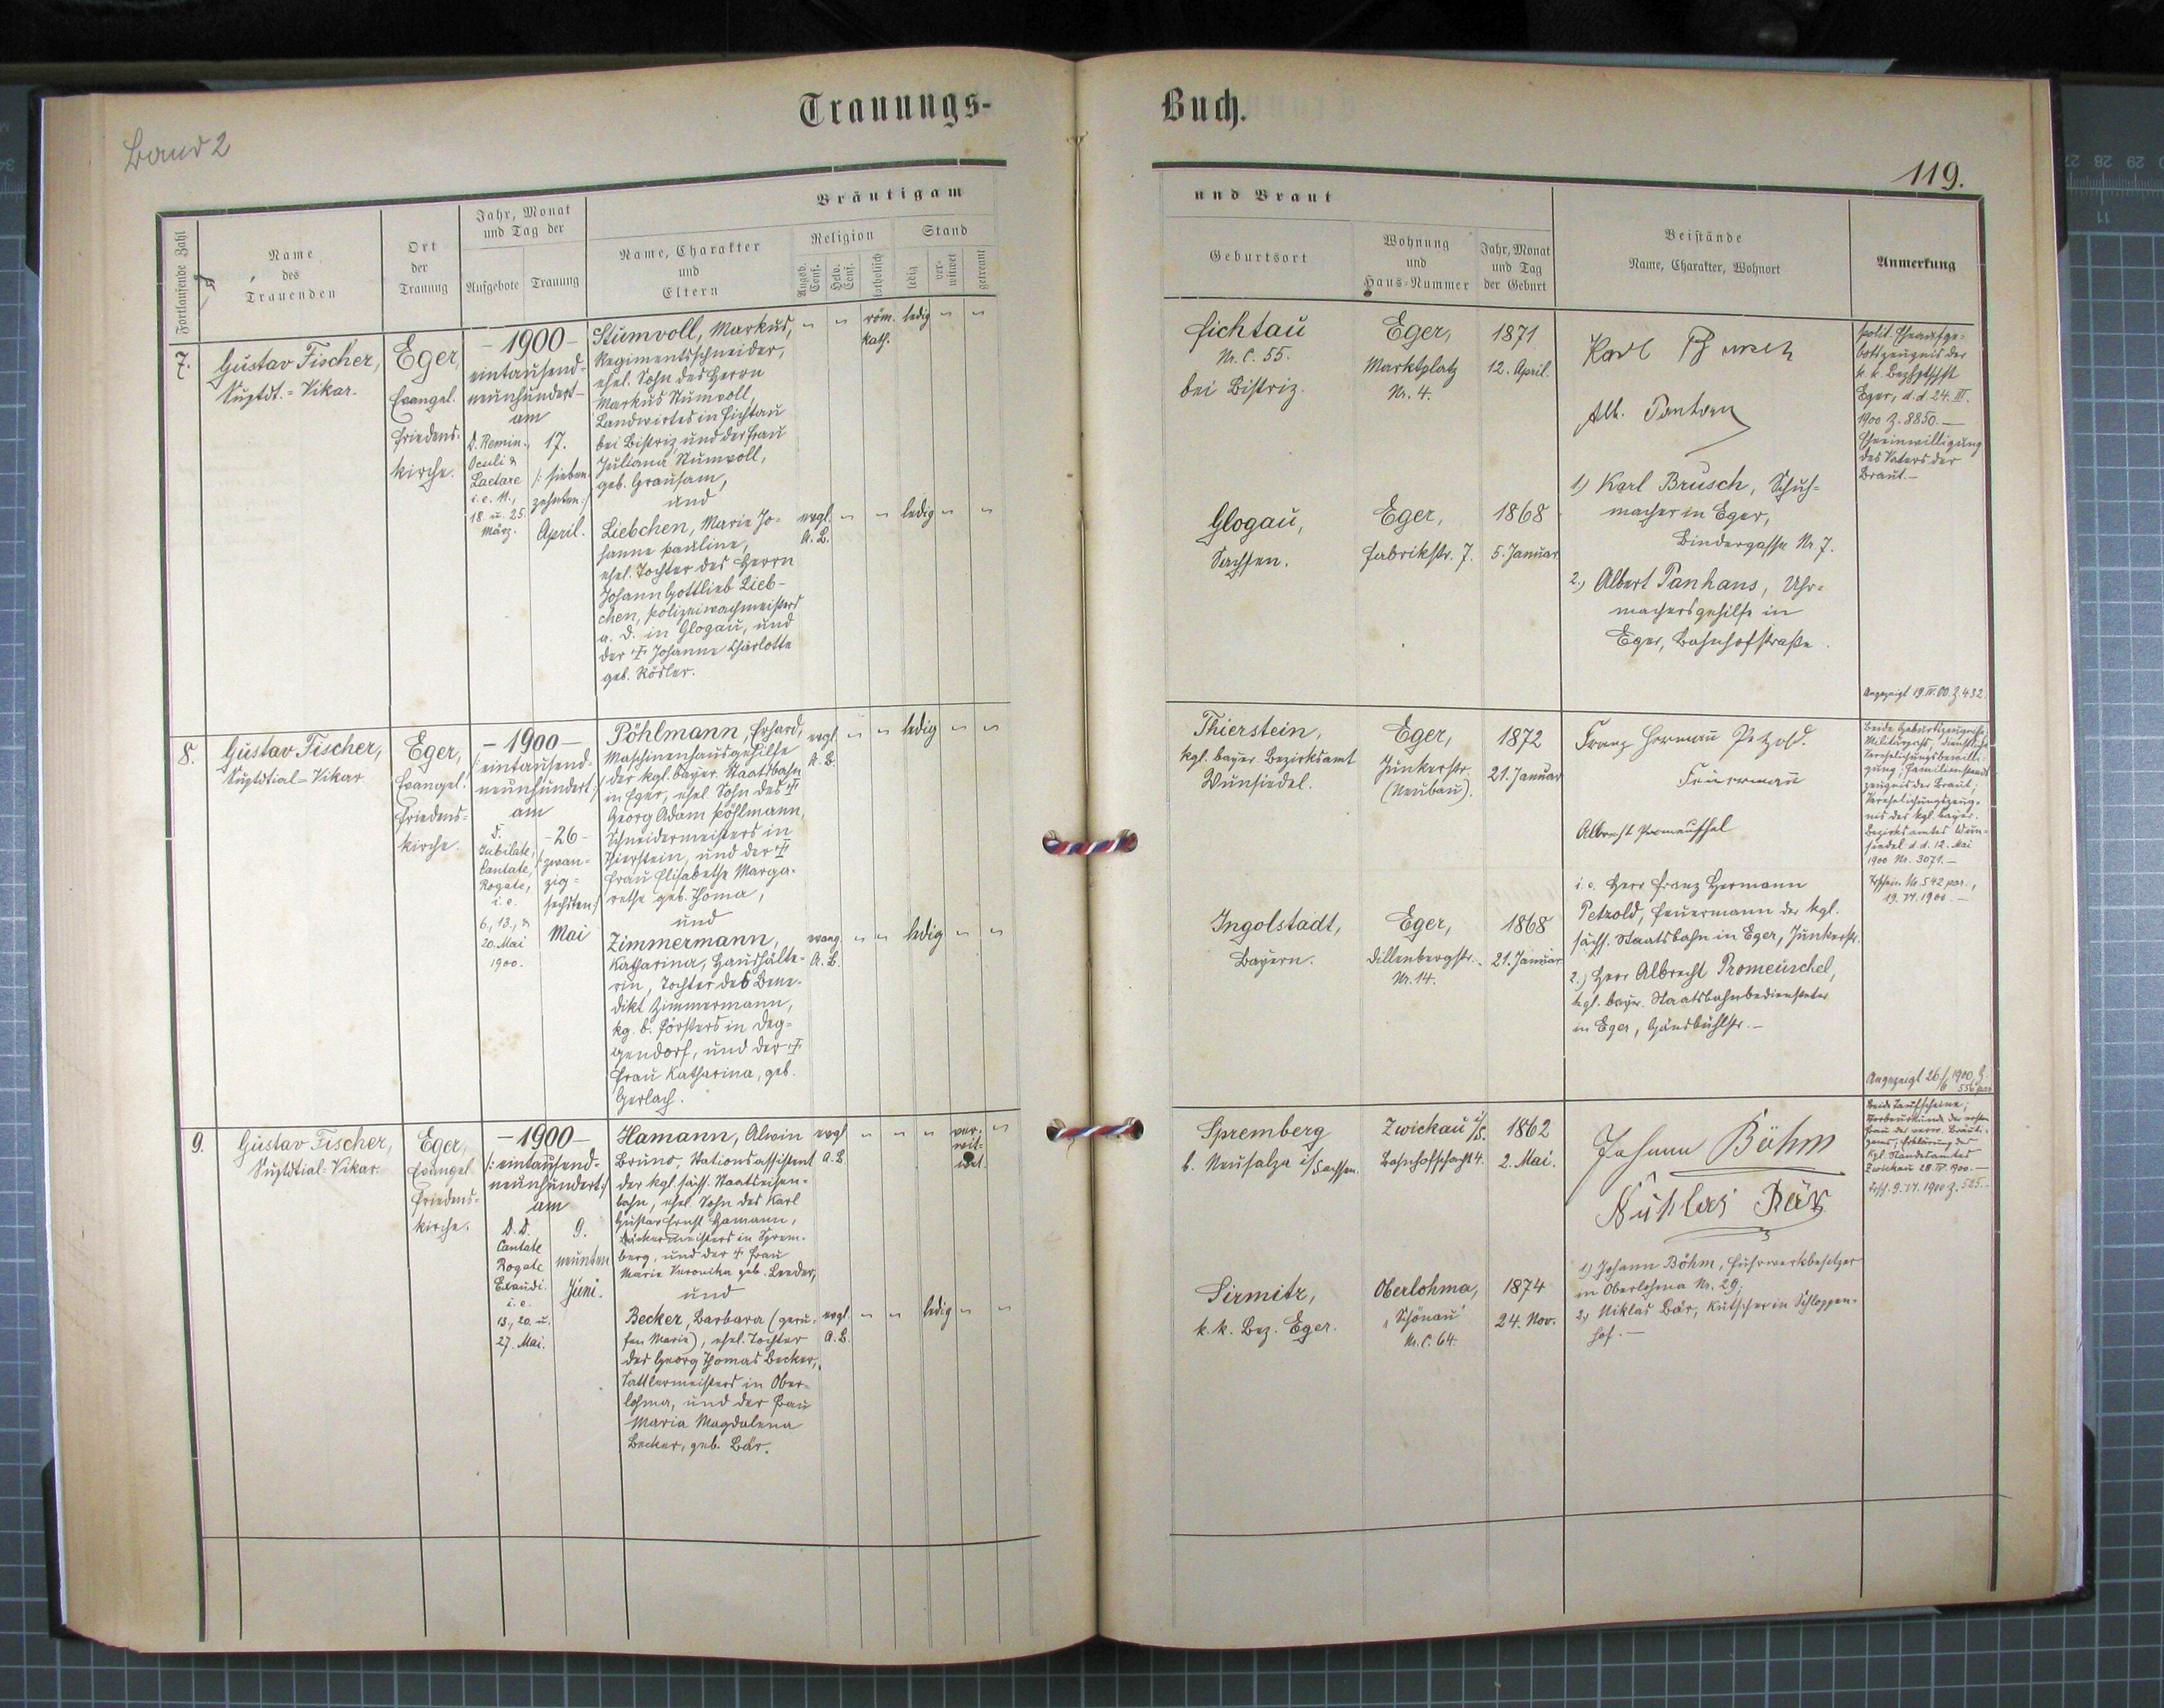 Band 2
Trauungs-
Buch.
119.
Fortlaufende Zahl
Name
des
Trauenden
Ort
der
Trauung
Jahr, Monat
und Tag der
Aufgebote
Trauung
Bräutigam
Name, Charakter
und
Eltern
Religion
Augsb. Conf.
Helv. Conf.
katholisch
Stand
ledig
ver-
witwet
getrennt
und Braut
Geburtsort
Wohnung
und
Haus-Nummer
Jahr, Monat
und Tag
der Geburt
Beistände
Name, Charakter, Wohnort
Anmerkung
7.
Gustav Fischer,
Suptdt.-Vikar.
Eger,
Evangel.
Friedens-
kirche.
- 1900 -
eintausend-
neunhundert-
am
D. Remin.,
Oculi &
Laetare
i. e. 11.,
18. u. 25.
März.
17.
/: sieben-
zehnten :/
April.
Stumvoll, Markus,
Regimentsschneider,
ehel. Sohn des Herrn
Markus Stumvoll,
Landwirtes in Fichtau
bei Bistriz und der Frau
Juliana Stumvoll,
geb. Grausam,
und
Liebchen, Marie Jo-
hanne Pauline,
ehel. Tochter des Herrn
Johann Gottlieb Lieb-
chen, Polizeiwachmeisters
a. D. in Glogau, und
der † Johanne Charlotte
geb. Rösler.
röm.
kath.
ledig
evgl.
A. B.
ledig
Fichtau
Nr. C. 55.
bei Bistriz.
Eger,
Marktplatz
Nr. 4.
1871
12. April.
Glogau,
Sachsen.
Eger,
Fabrikstr. 7.
1868
5. Januar
Karl Brusch
Alb. Panhans
1) Karl Brusch, Schuh-
macher in Eger,
Bindergasse Nr 7.
2.) Albert Panhans, Uhr-
machersgehilfe in
Eger, Bahnhofstraße.
polit. Eheaufge-
botszeugnis der
k. k. Bezhptschft
Eger, d. d. 24. III.
1900 Z. 8850. —
Eheeinwilligung
des Vaters der
Braut. —
Angezeigt 19. IV. 00. Z. 432.
8.
Gustav Fischer,
Suptdtial-Vikar
Eger,
Evangel.
Friedens-
kirche.
- 1900 -
/: eintausend-
neunhundert :/
am
D.
Jubilate,
Cantate,
Rogate,
i. e.
6., 13., &
20. Mai
1900.
- 26 -
/: zwan-
zig-
sechsten :/
Mai
Pöhlmann, Erhard,
Maschinenhausgehilfe
der kgl. bayer. Staatsbahn
in Eger, ehel. Sohn des †
Georg Adam Pöhlmann,
Schneidermeisters in
Thierstein, und der †
Frau Elisabetha Marga-
rethe geb. Thoma,
und
Zimmermann,
Katharina, Haushälte-
rin, Tochter des Bene-
dikt Zimmermann,
kg. b. Försters in Deg-
gendorf, und der †
Frau Katharina, geb.
Gerlach.
evgl.
A. B.
ledig
evang.
A. B.
ledig
Thierstein,
kgl. bayer. Bezirksamt
Wunsiedel.
Eger,
Junkerstr.
(Neubau).
1872
21. Januar
Ingolstadt,
Bayern.
Eger,
Dillenbergstr.
Nr. 14.
1868
21. Januar
Franz Hermann Petzold.
Feuermann
Albrecht Promeuschel
i. e. Herr Franz Hermann
Petzold, Feuermann der kgl.
sächs. Staatsbahn in Eger, Junkerstr.
2.) Herr Albrecht Promeuschel,
kgl. bayer. Staatsbahnbediensteter
in Eger, Gänsbühlstr. —
Beide Geburtszeugnisse;
Militärpaß, dienstliche
Verehelichungsbewilli-
gung; Familienstands-
zeugnis der Braut;
Verehelichungszeug-
nis des kgl. bayer.
Bezirksamtes Wun-
siedel d. d. 12. Mai
1900 Nr. 3071. —
Angezeigt 26/6 1900, Z.
556
9.
Gustav Fischer,
Suptdtial-Vikar.
Eger,
Evangel.
Friedens-
kirche.
- 1900 -
/: eintausend-
neunhundert :/
am
D. D.
Cantate
Rogate
Exaudi.
i. e.
13., 20. u.
27. Mai.
9.
neunten
Juni.
Hamann, Alwin
Bruno, Stationsassistent
der kgl. sächs. Staatseisen-
bahn, ehel. Sohn des Karl
Gustav Ernst Hamann,
Bäckermeisters in Sprem-
berg, und der † Frau
Marie Veronika geb. Leeder,
und
Becker, Barbara (geru-
fen Marie), ehel. Tochter
des Georg Thomas Becker,
Sattlermeisters in Ober-
lohma, und der Frau
Maria Magdalena
Becker, geb. Bär.
evgl
A. B.
ver-
wit-
wet
evgl.
A. B.
ledig
Spremberg
b. Neusalza i/Sachsen.
Zwickau i/S.
1862
2. Mai.
Sirmitz,
k. k. Bez. Eger.
Oberlohma,
"Schönau"
Nr. C. 64.
1874
24. Nov.
Johann Böhm
Niklas Bär
1) Johann Böhm, Fuhrwerkbesitzer
in Oberlohma Nr. 29,
2) Niklas Bär, Kutscher in Schloppen-
hof. —
Beide Taufscheine;
Sterbeurkunde der ersten
Frau des verw. Bräuti-
gams; Erklärung des
Kgl. Standesamtes
Zwickau 28. IV. 1900. —